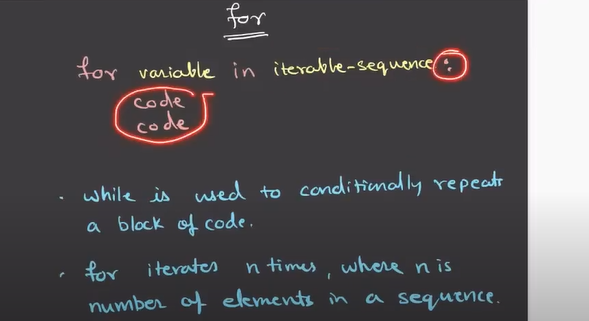 for
for variable in iterable-sequence :
code
code
. while is used to conditionally repeats
a block of code.
. for iterates n times, where n is
number of elements in a sequence.